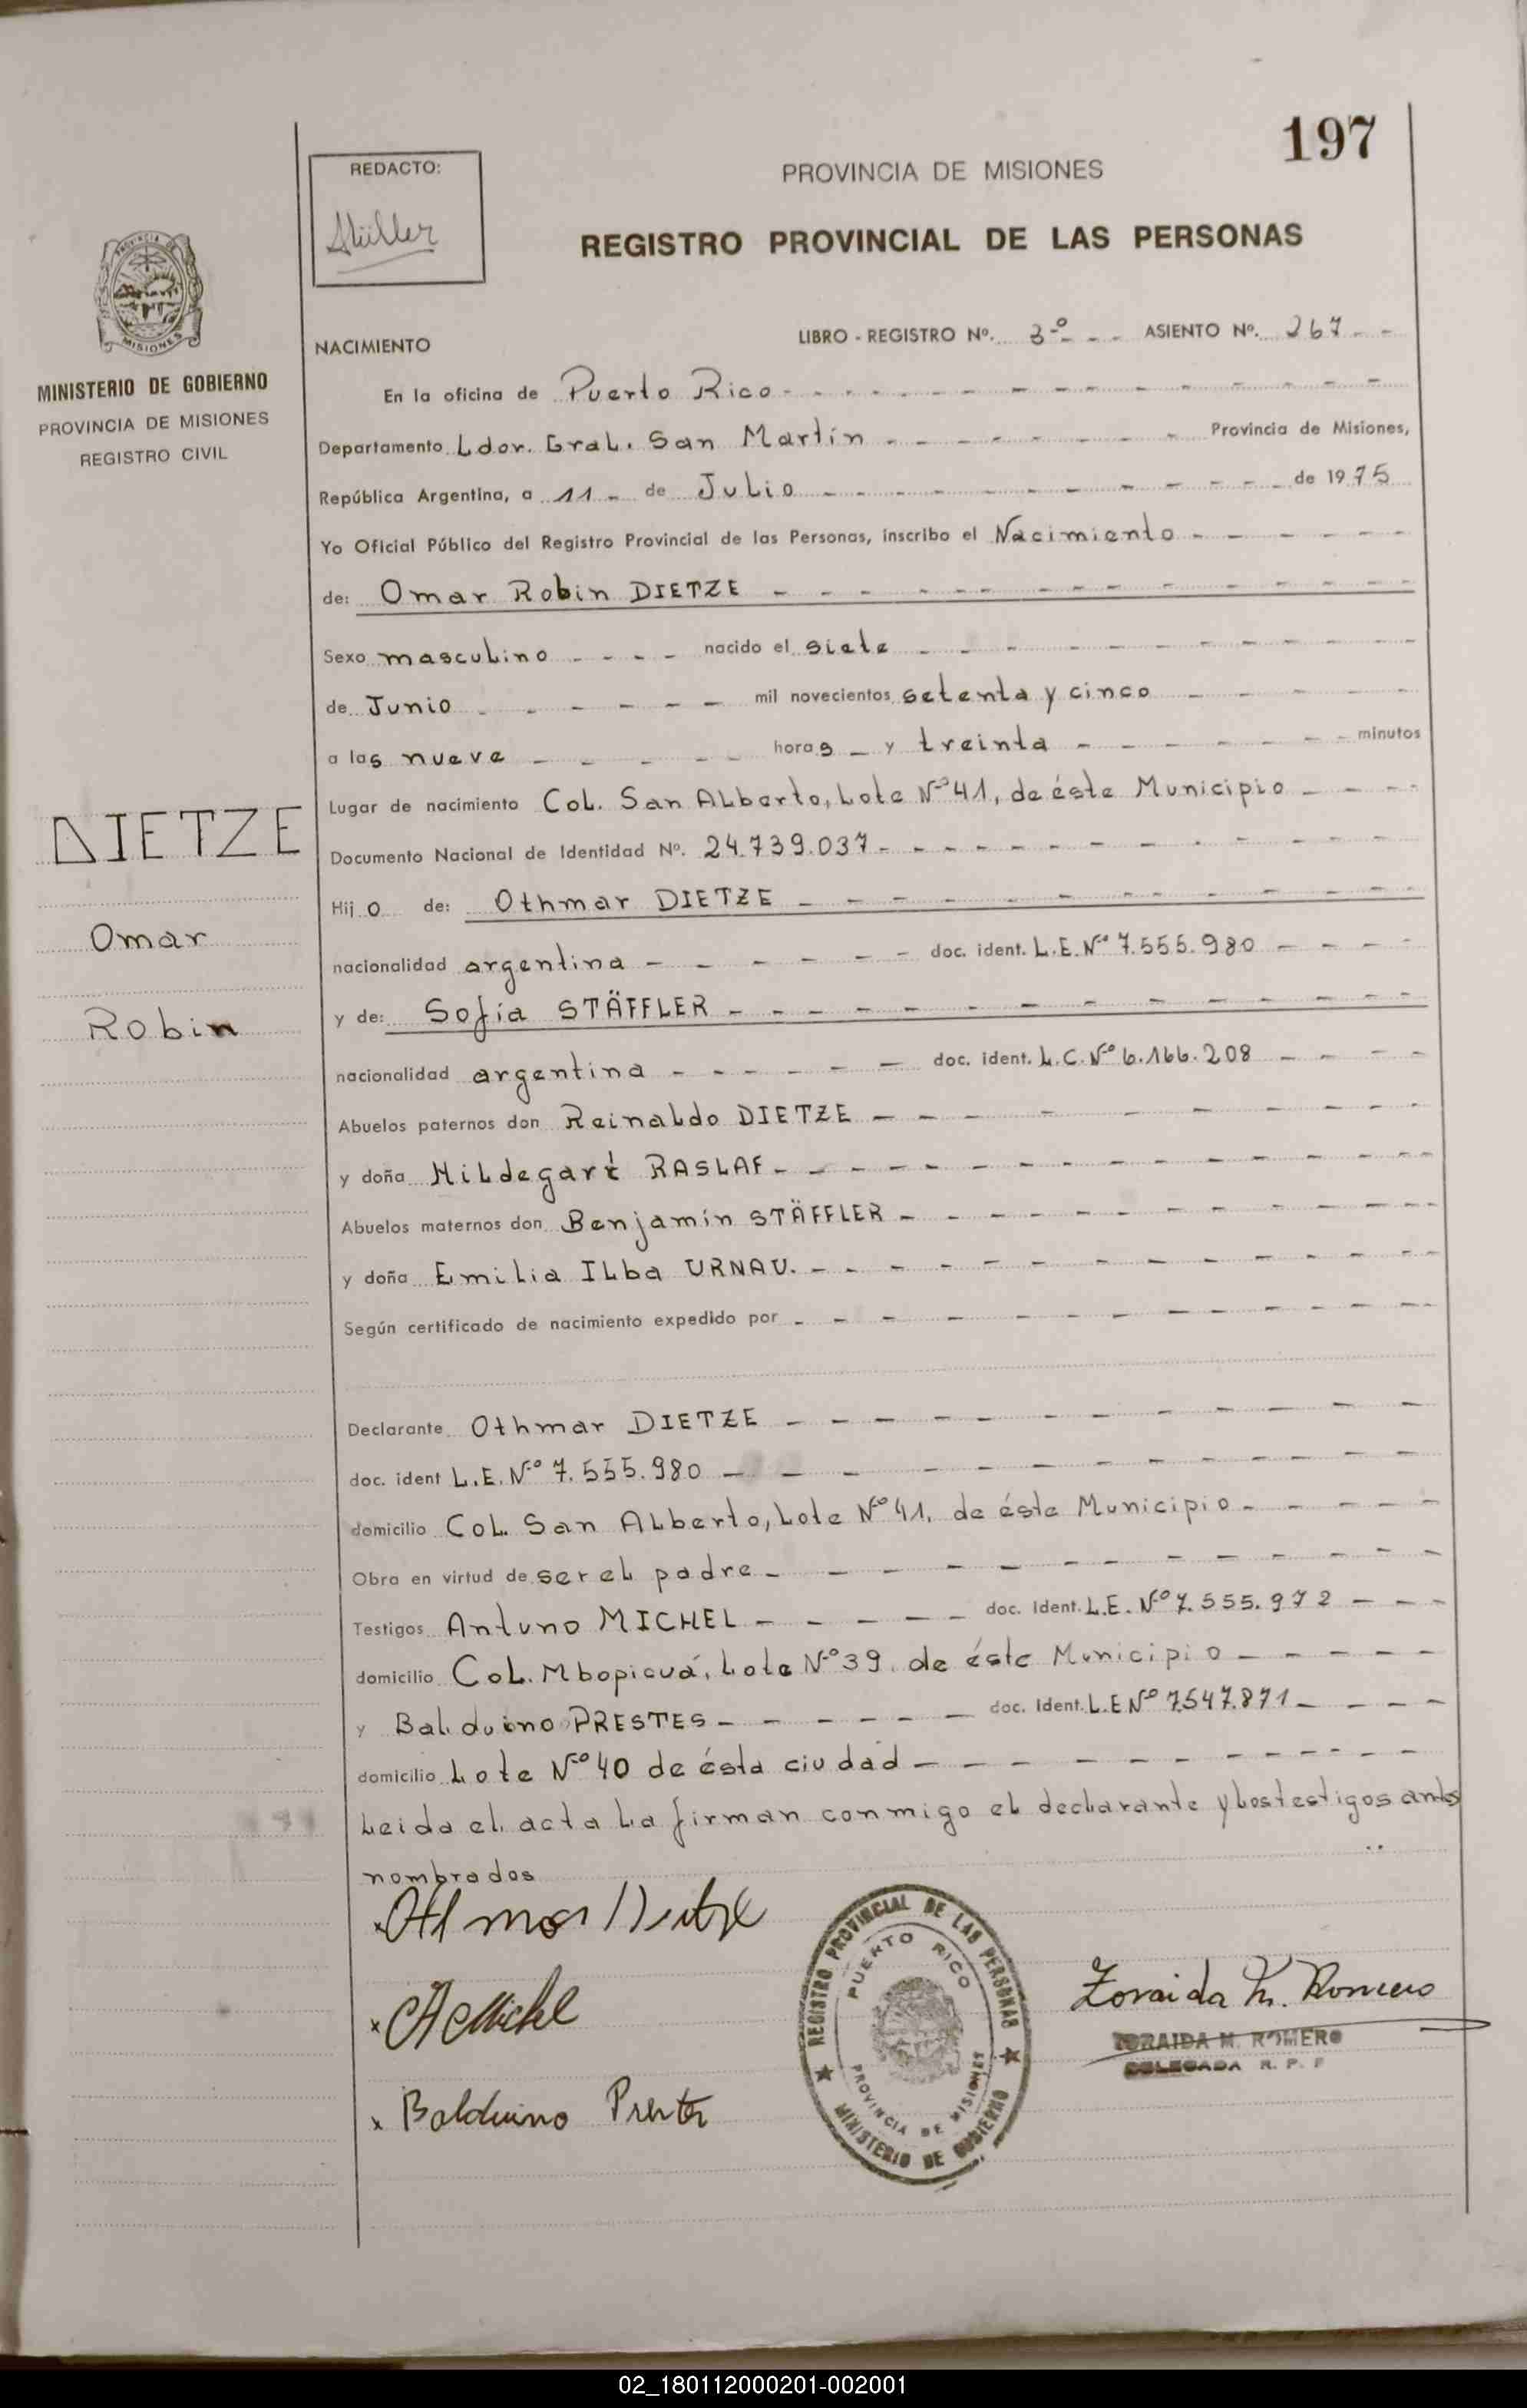 197
REDACTO:
Müller
PROVINCIA DE MISIONES
REGISTRO PROVINCIAL DE LAS PERSONAS
PROVINCIA DE
MISIONES
MINISTERIO DE GOBIERNO
PROVINCIA DE MISIONES
REGISTRO CIVIL
NACIMIENTO
LIBRO - REGISTRO Nº. 3º - - - ASIENTO Nº. 267 - -
En la oficina de Puerto Rico
Departamento Ldor. Gral. San Martín Provincia de Misiones,
República Argentina, a 11 - de Julio de 1975
Yo Oficial Público del Registro Provincial de las Personas, inscribo el Nacimiento
de: Omar Robin DIETZE
Sexo masculino nacido el siete
de Junio mil novecientos setenta y cinco
a las nueve horas y treinta minutos
Lugar de nacimiento Col. San Alberto, Lote Nº 41, de éste Municipio
DIETZE
Omar
Robin
Documento Nacional de Identidad Nº. 24.739.037
Hijo de: Othmar DIETZE
nacionalidad argentina doc. ident. L.E. Nº 7.555.980
y de: Sofía STÄFFLER
nacionalidad argentina doc. ident. L.C. Nº 6.166.208
Abuelos paternos don Reinaldo DIETZE
y doña Hildegart RASLAF
Abuelos maternos don Benjamín STÄFFLER
y doña Emilia ILba URNAU.
Según certificado de nacimiento expedido por
Declarante Othmar DIETZE
doc. ident L.E. Nº 7.555.980
domicilio Col. San Alberto, Lote Nº 41, de éste Municipio
Obra en virtud de ser el padre
Testigos Antuno MICHEL doc. Ident. L.E. Nº 7.555.972
domicilio Col. Mbopicuá, Lote Nº 39, de éste Municipio
y Balduino PRESTES doc. Ident. L.E Nº 7.547.871
domicilio Lote Nº 40 de ésta ciudad
Leida el acta la firman conmigo el declarante y los testigos antes
nombrados
x Othmar Dietze
x A Michel
x Balduino Prestes
REGISTRO PROVINCIAL DE LAS PERSONAS
PUERTO RICO
PROVINCIA DE MISIONES
MINISTERIO DE GOBIERNO
Zoraida M. Romero
ZORAIDA M. ROMERO
DELEGADA R. P. P
02_180112000201-002001